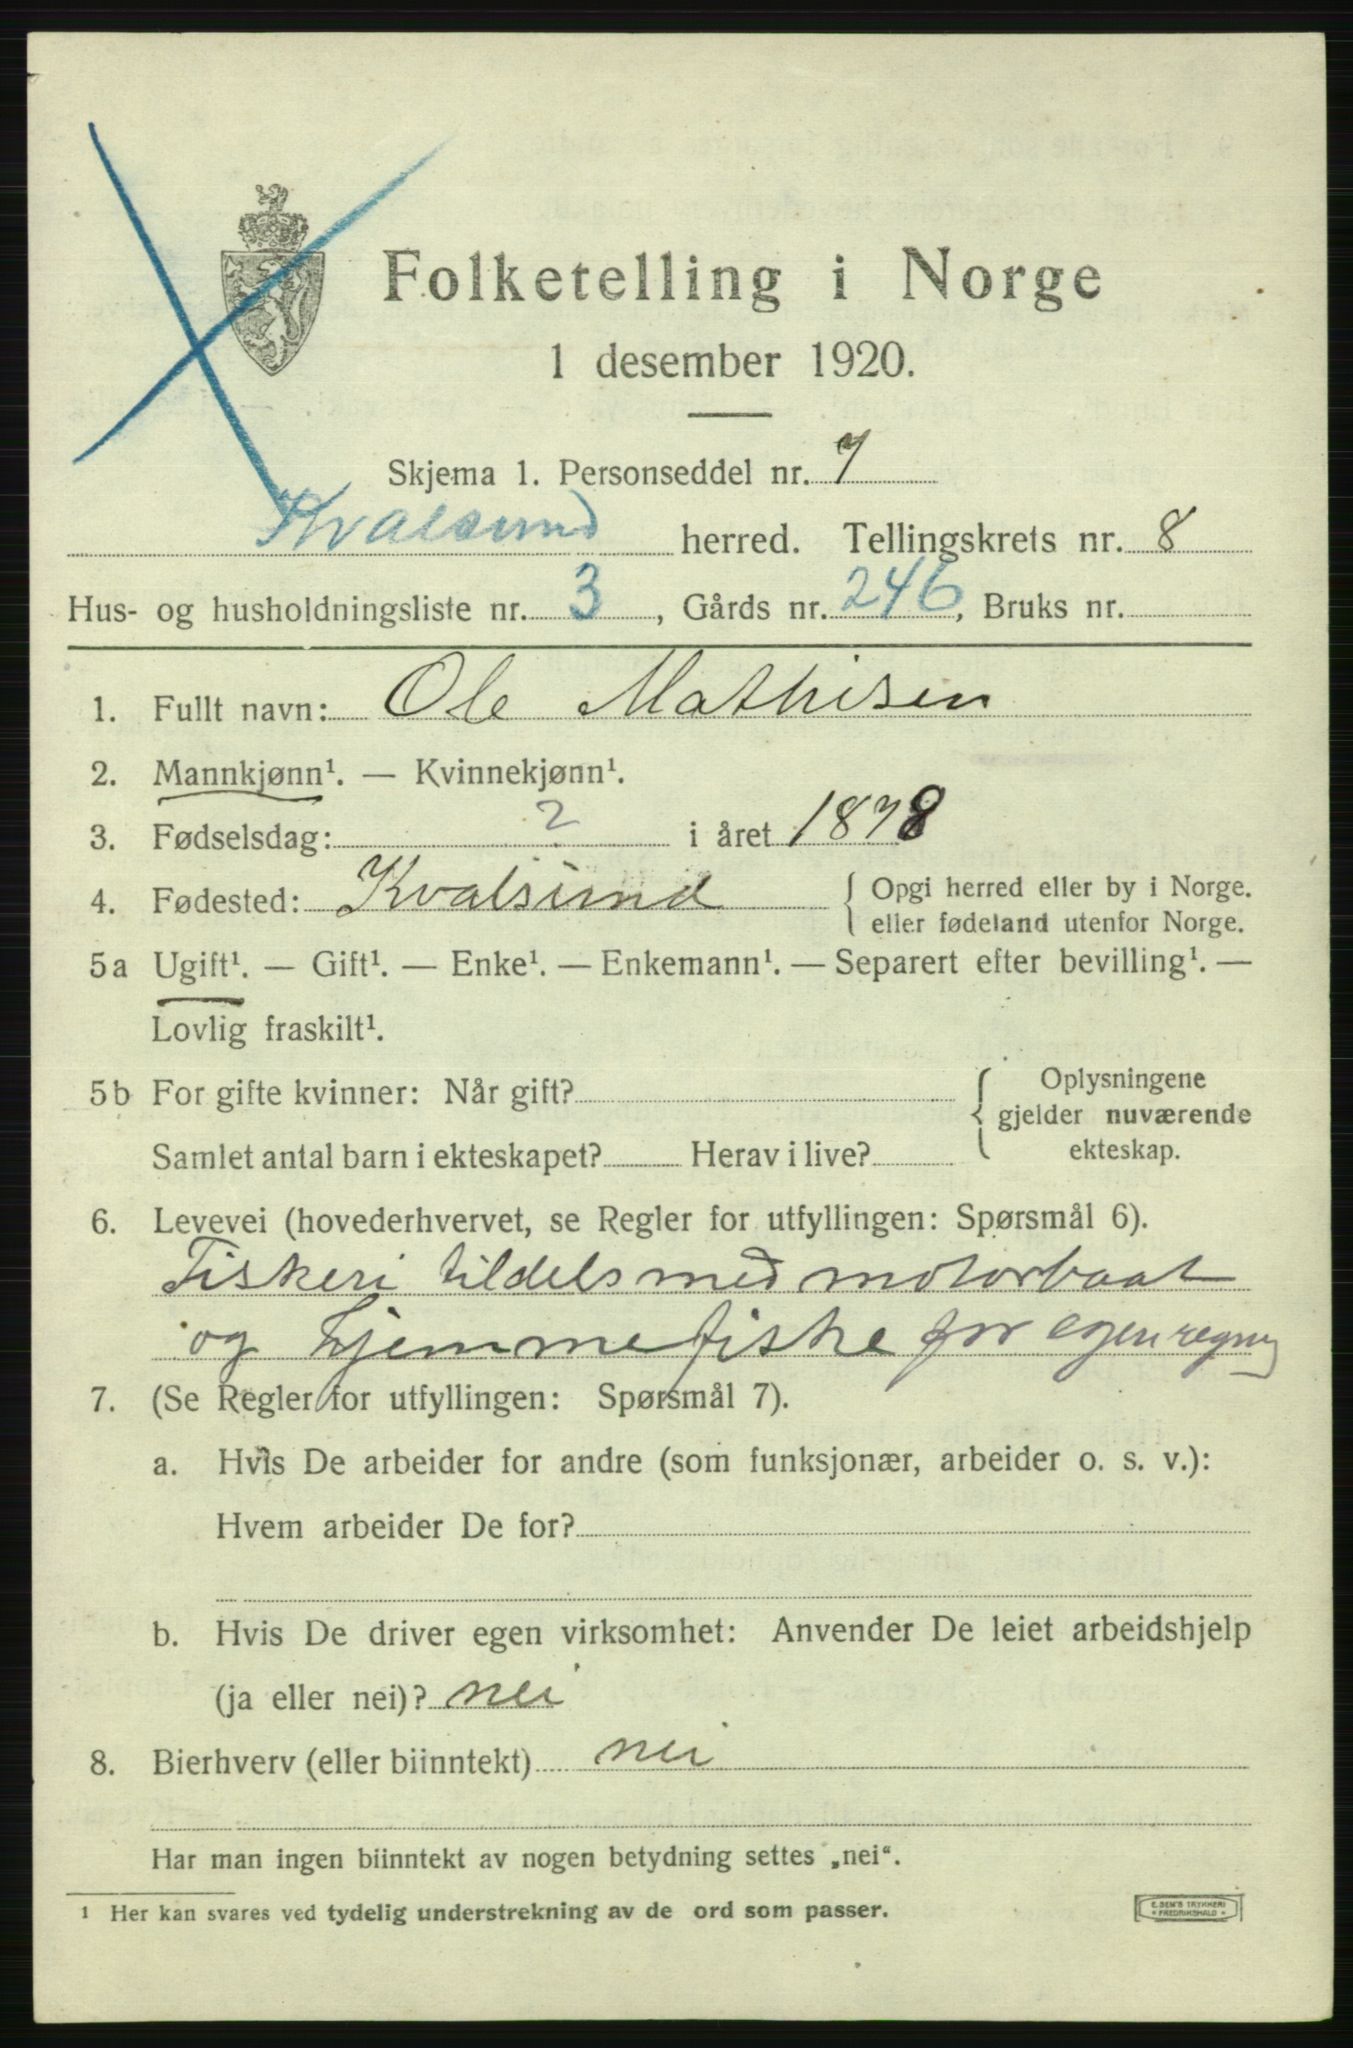 Folketelling i Norge
1 desember 1920.
Skjema 1. Personseddel nr. 7
Kvalsund herred. Tellingskrets nr. 8
Hus- og husholdningsliste nr. 3, Gårds nr. 246, Bruks nr.
1. Fullt navn: Ole Mathisen
2. Mannkjønn¹. — Kvinnekjønn¹.
3. Fødselsdag: ? i året 1878
4. Fødested: Kvalsund { Opgi herred eller by i Norge.
eller fødeland utenfor Norge.
5a Ugift¹. — Gift¹. — Enke¹. — Enkemann¹. — Separert efter bevilling¹. —
Lovlig fraskilt¹.
5b For gifte kvinner: Når gift? { Oplysningene
gjelder nuværende
Samlet antal barn i ekteskapet? Herav i live? ekteskap.
6. Levevei (hovederhvervet, se Regler for utfyllingen: Spørsmål 6).
Fiskeri tildels med motorbaat
og hjemmefiske for egen regning
7. (Se Regler for utfyllingen: Spørsmål 7).
a. Hvis De arbeider for andre (som funksjonær, arbeider o. s. v.):
Hvem arbeider De for?
b. Hvis De driver egen virksomhet: Anvender De leiet arbeidshjelp
(ja eller nei)? nei
8. Bierhverv (eller biinntekt) nei
Har man ingen biinntekt av nogen betydning settes „nei“.
¹ Her kan svares ved tydelig understrekning av de ord som passer.
E. SEM'S TRYKKERI
FREDRIKSHALD